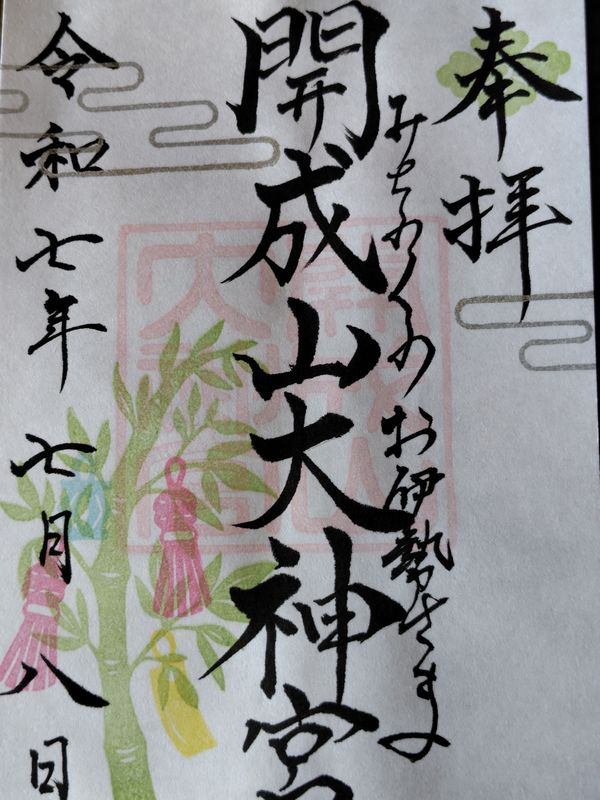 奉拝
みちのくのお伊勢さま
開成山大神宮
令和七年七月八日